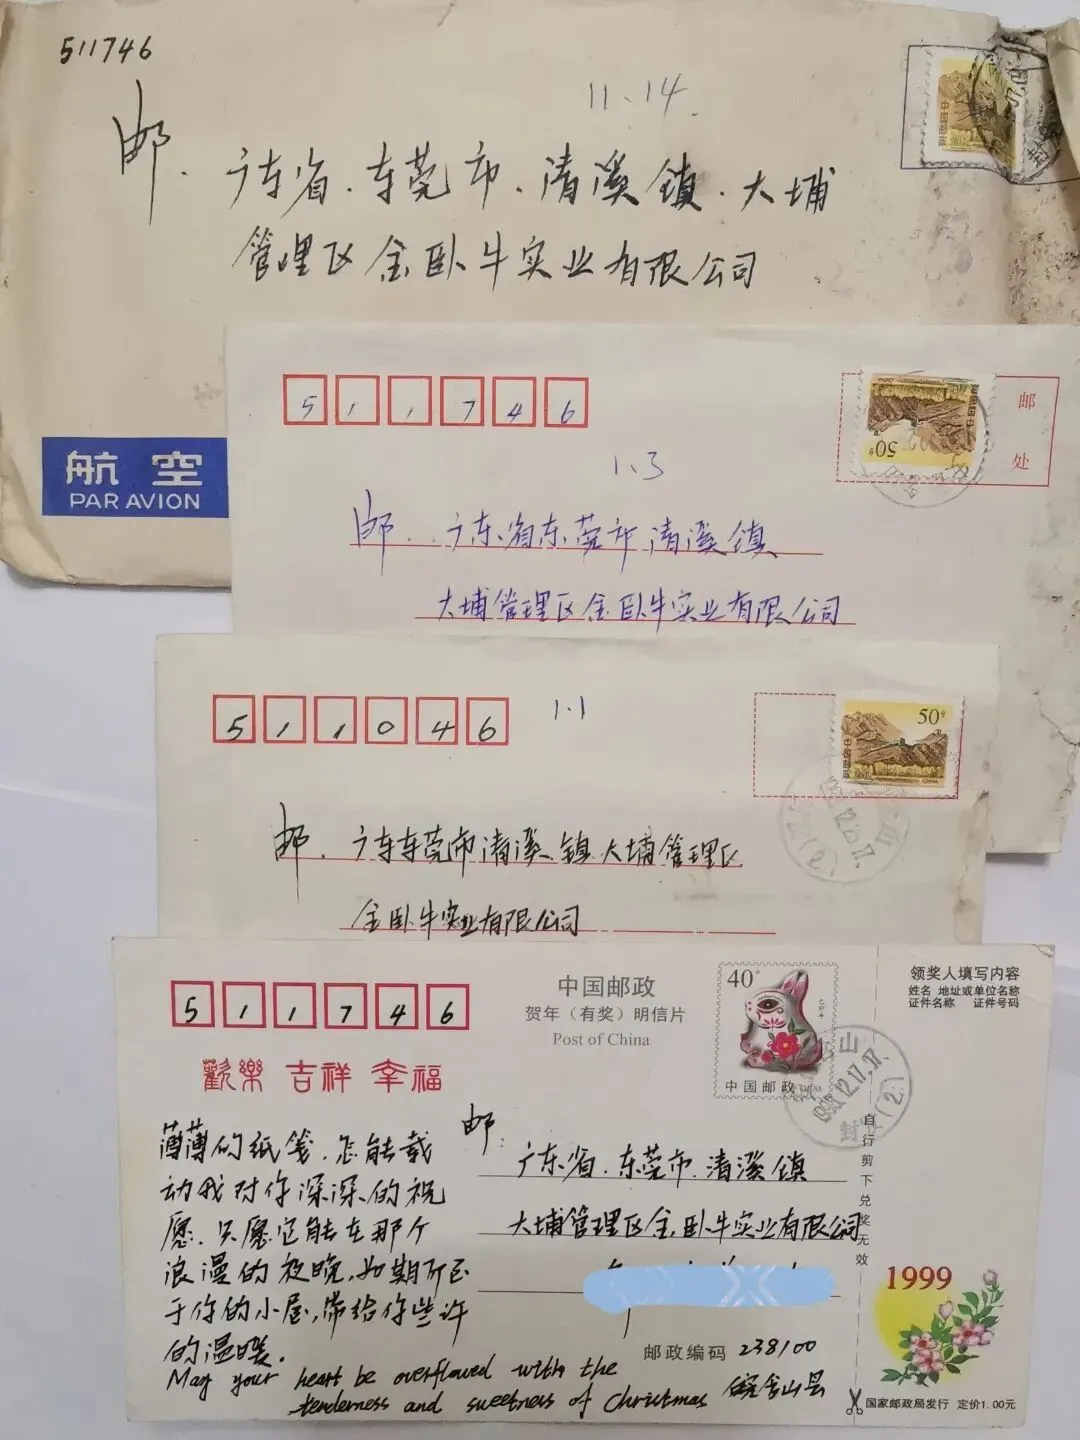 511746
11.14
邮.广东省.东莞市.清溪镇.大埔
管理区金卧牛实业有限公司
中国邮政
航空
PAR AVION
511746
1.3
50分
中国邮政
邮
处
邮.广东省东莞市清溪镇
大埔管理区金卧牛实业有限公司
511046
1.1
50分
中国邮政
邮.广东东莞市清溪镇大埔管理区
金卧牛实业有限公司
511746
中国邮政
贺年（有奖）明信片
Post of China
40分
中国邮政
领奖人填写内容
姓名 地址或单位名称
证件名称 证件号码
歡樂 吉祥 幸福
山
1998.12.17.17
(2)
薄薄的纸笺，怎能载
动我对你深深的祝
愿，只愿它能在那个
浪漫的夜晚，如期而至
于你的小屋，带给你些许
的温暖.
May your heart be overflowed with the
tenderness and sweetness of Christmas
邮:
广东省.东莞市.清溪镇
大埔管理区金卧牛实业有限公司
邮政编码 238100
皖含山县
自行剪下兑奖无效
1999
国家邮政局发行 定价1.00元